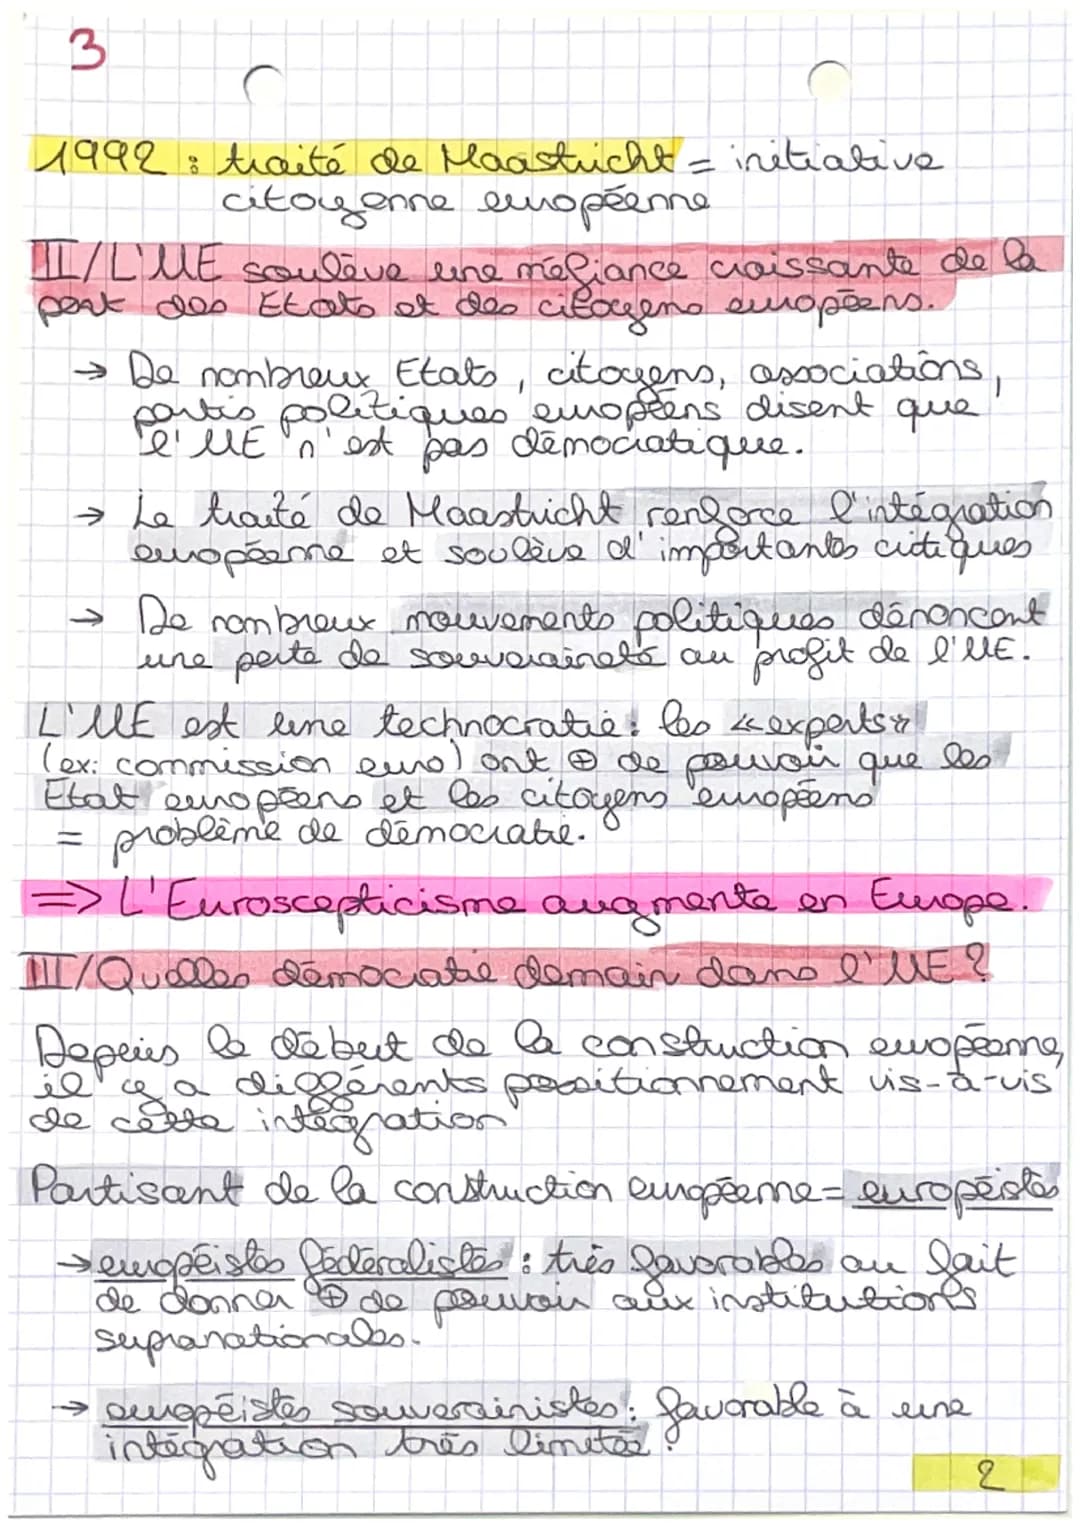 3
1992 : traité de Maastricht = initiative
citoyenne européenne
II/L'UE soulève une méfiance croissante de la
part des Etats et des citoyens européens.
→ De nombreux Etats, citoyens, associations,
partis politiques européens disent que
l'UE n'est pas démocratique.
→ Le traité de Maastricht renforce l'intégration
européenne et soulève d'importants critiques
→ De nombreux mouvements politiques dénoncent
une perte de souveraineté au profit de l'UE.
L'UE est une technocratie : les «experts»
(ex: commission euro) ont ⊕ de pouvoir que les
Etat européens et les citoyens européens
= problème de démocratie.
=> L'Euroscepticisme augmente en Europe.
III/Quelles démocratie demain dans l'UE ?
Depuis le début de la construction européenne,
il y a différents positionnement vis-à-vis
de cette intégration
Partisant de la construction européenne = européistes
→ européistes fédéralistes : très favorables au fait
de donner ⊕ de pouvoir aux institutions
supranationales.
→ européistes souverainistes : favorable à une
intégration très limitée.
2